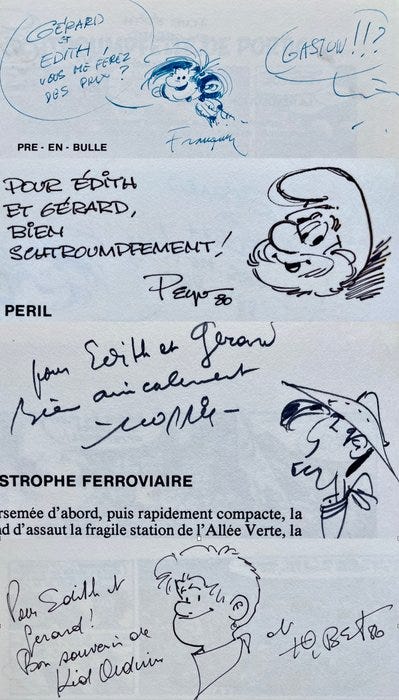 GÉRARD
ET
EDITH !
VOUS ME FEREZ
DES PRIX ?
GASTON !!?
Franquin
PRE - EN - BULLE
POUR ÉDITH
ET GÉRARD,
BIEN
SCHTROUMPFEMENT !
Peyo 86
PERIL
pour Edith et Gérard
Bien amicalement
- Morris -
STROPHE FERROVIAIRE
rsemée d'abord, puis rapidement compacte, la
d d'assaut la fragile station de l'Allée Verte, la
Pour Edith et
Gérard !
Bon souvenir de
Kid Ordinn